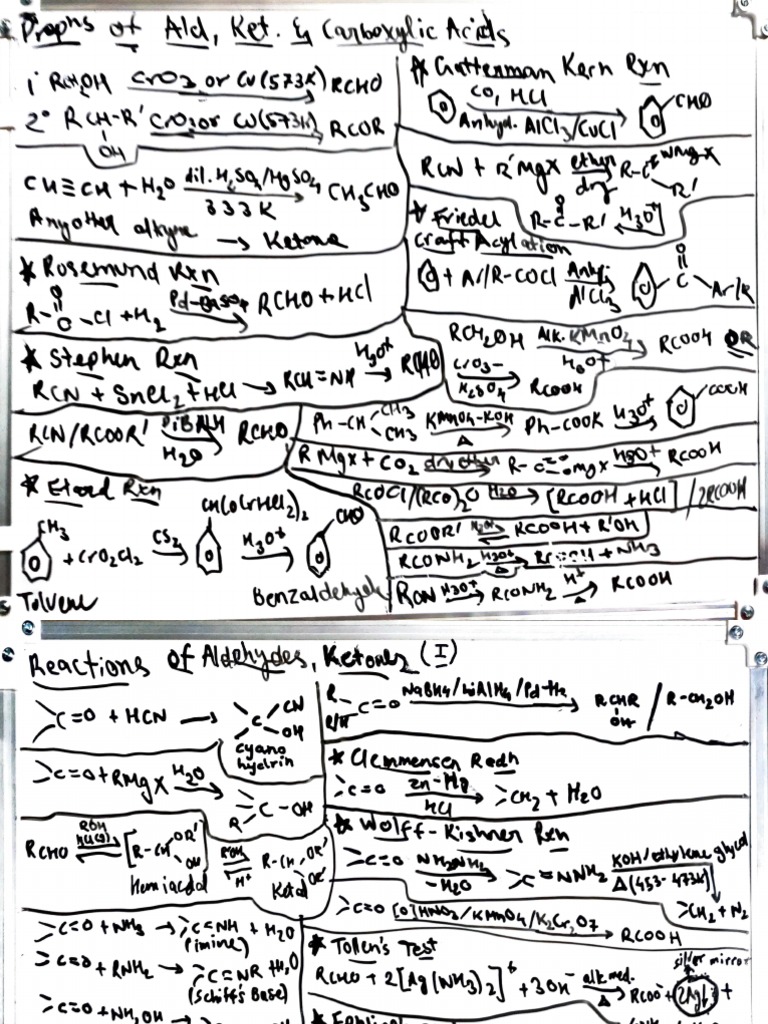 Prepns of Ald, Ket. & Carboxylic Acids
1° RCH₂OH CrO3 or Cu(573K) RCHO
2° RCH-R' CrO3 or Cu(573K) RCOR
OH
CH≡CH + H₂O dil. H₂SO₄/HgSO₄ 333K CH₃CHO
Any other alkyne → Ketone
* Rosemund Rxn
R-C-Cl + H₂ Pd-BaSO₄ RCHO + HCl
O
* Stephen Rxn
RCN + SnCl₂ + HCl → RCH=NH H₃O⁺ → RCHO
RCN/RCOOR' DiBALH H₂O RCHO
* Etard Rxn
CH₃ + CrO₂Cl₂ CS₂ → CH(OCrHCl₂)₂ H₃O⁺ → CHO
Toluene Benzaldehyde
* Gatterman Kern Rxn
CO, HCl Anhyd. AlCl₃/CuCl CHO
RCN + R'MgX ether dry R-C R'
R-C-R' H₃O⁺
O
* Friedel
Craft Acylation
+ Ar/R-COCl Anhy. AlCl₃ C Ar/R
O
RCH₂OH Alk. KMnO₄ H₃O⁺ RCOOH OR
CrO₃- H₂SO₄ RCOOH
Ph-CH CH₃ CH₃ KMnO₄-KOH Δ Ph-COOK H₃O⁺ COOH
RMgX + CO₂ dry ether R-C OMgX H₃O⁺ RCOOH
RCOCl/(RCO)₂O H₂O → [RCOOH + HCl] / 2RCOOH
RCOOR' H₃O⁺ RCOOH + R'OH
RCONH₂ H₃O⁺ Δ + NH₃
RCN H₃O⁺ → RCONH₂ H⁺ Δ → RCOOH
Reactions of Aldehydes, Ketones (I)
C=O + HCN → C CN OH
Cyano
hydrin
C=O + RMgX H₂O → C-OH
R
RCHO ROH HCl(g) [R-CH OR' OH] R'OH H⁺ R-CH OR' OR'
Hemiacetal Ketal
C=O + NH₃ → C=NH + H₂O
(imine)
C=O + RNH₂ → C=NR + H₂O
(Schiff's Base)
C=O + NH₂OH
R R/H C=O NaBH₄/LiAlH₄/Pd-H₂ RCHR OH / R-CH₂OH
* Clemmensen Redn
C=O Zn-Hg HCl → CH₂ + H₂O
* Wolff-Kishner Rxn
C=O NH₂NH₂ -H₂O → C=NNH₂ KOH/ethylene glycol Δ(453-473K) CH₂ + N₂
C=O [O] HNO₃/KMnO₄/K₂Cr₂O₇ → RCOOH
* Tollen's Test
silver mirror
RCHO + 2[Ag(NH₃)₂]⁺ + 3OH⁻ alk med. Δ RCOO⁻ + 2Ag↓ +